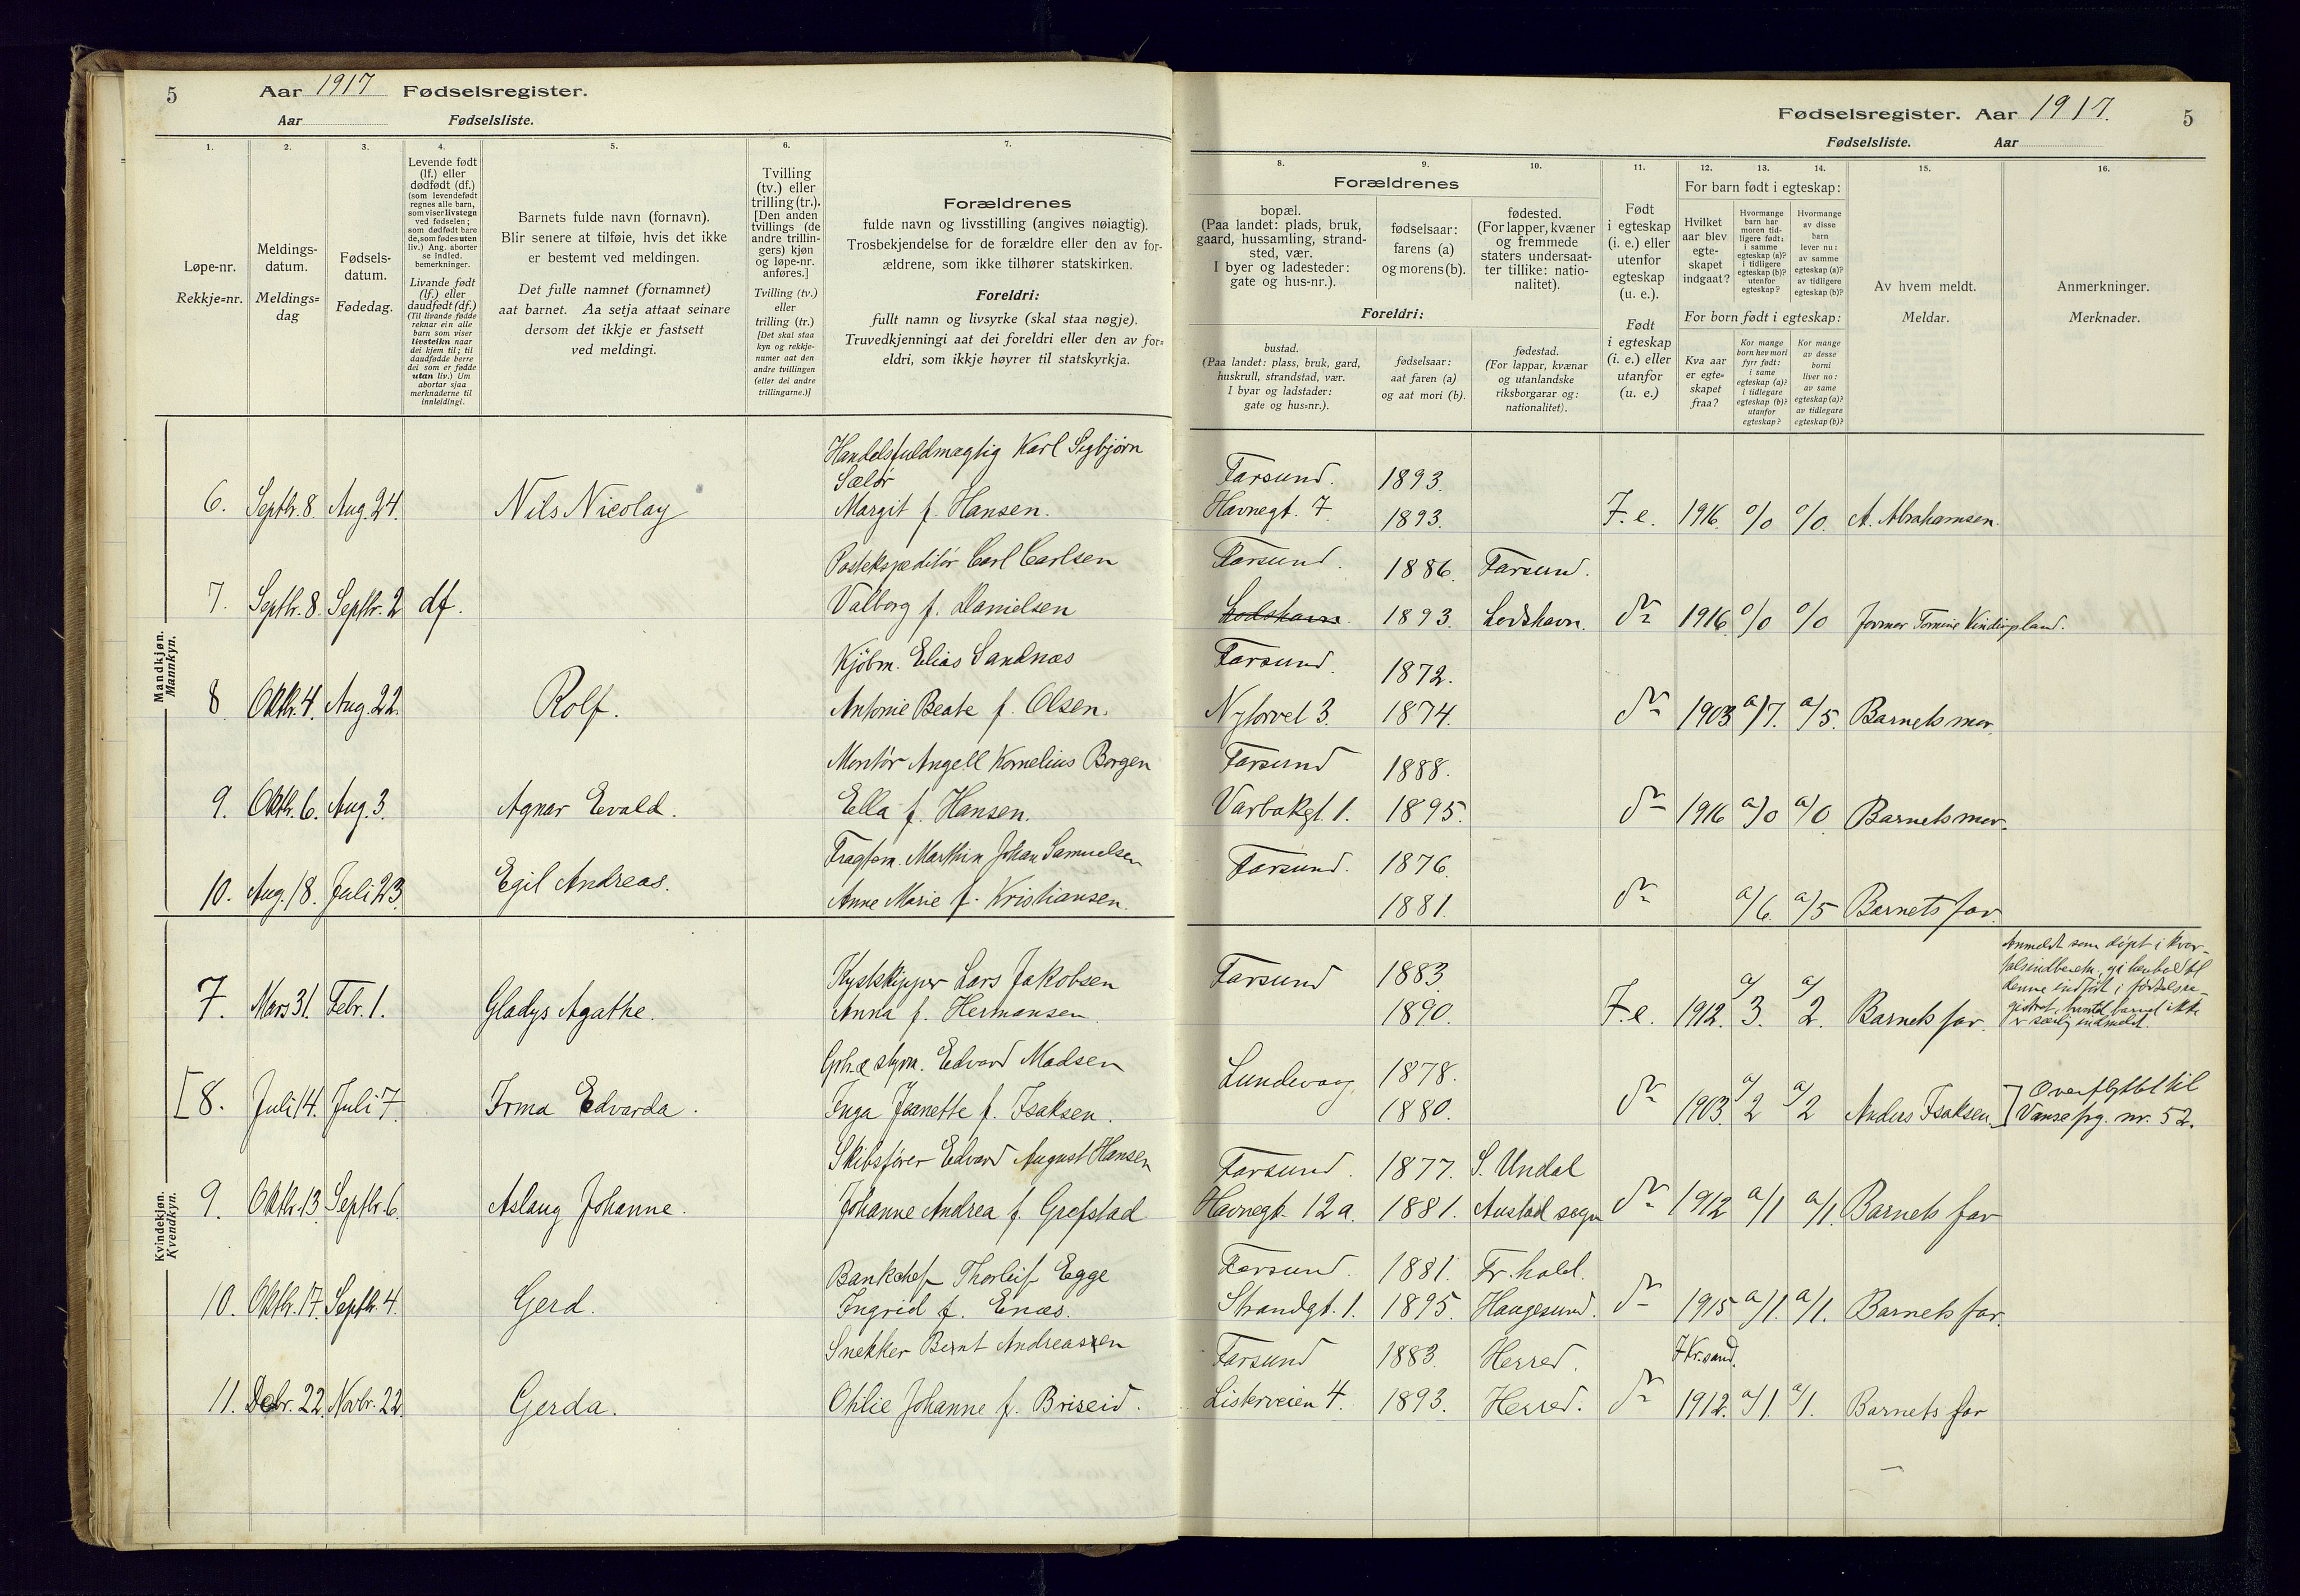 5 Aar 1917 Fødselsregister.
Aar Fødselsliste.
1. 2. 3. 4. 5. 6. 7.
Løpe-nr.
Rekkje=nr.
Meldings-
datum.
Meldings=
dag
Fødsels-
datum.
Fødedag.
Levende født
(lf.) eller
dødfødt (df.)
(som levendefødt
regnes alle barn,
som viser livstegn
ved fødselen;
som dødfødt bare
de, som fødes uten
liv.) Ang. aborter
se indled.
bemerkninger.
Livande født
(lf.) eller
daudfødt (df.)
(Til livande fødde
reknar ein alle
barn som viser
livsteikn naar
dei kjem til; til
daudfødde berre
dei som er fødde
utan liv.) Um
abortar sjaa
merknaderne til
innleidingi.
Barnets fulde navn (fornavn).
Blir senere at tilføie, hvis det ikke
er bestemt ved meldingen.
Det fulle namnet (fornamnet)
aat barnet. Aa setja attaat seinare
dersom det ikkje er fastsett
ved meldingi.
Tvilling
(tv.) eller
trilling (tr.).
[Den anden
tvillings (de
andre trillin-
gers) kjøn
og løpe-nr.
anføres.]
Tvilling (tv.)
eller
trilling (tr.)
[Det skal staa
kyn og rekkje-
numer aat den
andre tvillingen
(eller dei andre
trillingarne.)]
Forældrenes
fulde navn og livsstilling (angives nøiagtig).
Trosbekjendelse for de forældre eller den av for-
ældrene, som ikke tilhører statskirken.
Foreldri:
fullt namn og livsyrke (skal staa nøgje).
Truvedkjenningi aat dei foreldri eller den av for=
eldri, som ikkje høyrer til statskyrkja.
Mandkjøn.
Mankyn.
Handelsfuldmægtig Karl Sigbjørn
Sælør
6. Septbr. 8. Aug. 24. Nils Nicolay Margit f. Hansen.
Postekspeditør Carl Carlsen
7. Septbr. 8. Septbr. 2 df. Valborg f. Danielsen
Kjöbm. Elias Sandnæs
8 Oktbr. 4. Aug. 22. Rolf. Antonie Beate f. Olsen.
Montör Angell Kornelius Borgen
9. Oktbr. 6. Aug. 3. Agnar Evald. Ella f. Hansen.
Fragtem. Marthin Johan Samuelsen
10. Aug. 18. Juli 23. Egil Andreas. Anne Marie f. Kristiansen.
Kvinekjøn.
Kvendkyn.
Kystskipper Lars Jakobsen
7. Mars 31. Febr. 1. Gladys Agathe. Anna f. Hermansen.
Edvard Madsen
[8. Juli 14. Juli 7. Irma Edvarda. Inga Jeanette f. Isaksen.
Skibsfører Edvard August Hansen
9. Oktbr. 13 Septbr. 6. Aslaug Johanne. Johanne Andrea f. Grefstad
Bankchef Thorleif Egge
10. Oktbr. 17. Septbr. 4. Gerd. Ingrid f. Enæs.
Snekker Bernt Andreassen
11. Debr. 22. Novbr. 22. Gerda. Othlie Johanne f. Briseid.
Fødselsregister. Aar 1917. 5
Fødselsliste. Aar
8. 9. 10. 11. 12. 13. 14. 15. 16.
Forældrenes
bopæl.
(Paa landet: plads, bruk,
gaard, hussamling, strand-
sted, vær.
I byer og ladesteder:
gate og hus-nr.).
fødselsaar:
farens (a)
og morens (b).
fødested.
(For lapper, kvæner
og fremmede
staters undersaat-
ter tillike: natio-
nalitet).
Foreldri:
bustad.
(Paa landet: plass, bruk, gard,
huskrull, strandstad, vær.
I byar og ladstader:
gate og hus=nr.).
fødselsaar:
aat faren (a)
og aat mori (b).
fødestad.
(For lappar, kvænar
og utanlandske
riksborgarar og:
nationalitet).
Født
i egteskap
(i. e.) eller
utenfor
egteskap
(u. e.).
Født
i egteskap
(i. e.) eller
utanfor
(u. e.)
For barn født i egteskap:
Hvilket
aar blev
egte-
skapet
indgaat?
Hvormange
barn har
moren tid-
ligere født:
i samme
egteskap (a)?
i tidligere
egteskap (b)?
utenfor
egteskap?
Hvormange
av disse
barn
lever nu:
av samme
egteskap (a)?
av tidligere
egteskap (b)?
For born født i egteskap:
Kva aar
er egte=
skapet
fraa?
Kor mange
born hev mori
fyrr født:
i same
egteskap (a)?
i tidlegare
egteskap (b)?
utanfor
egteskap?
Kor mange
av desse
borni
liver no:
av same
egteskap (a)?
av tidlegare
egteskap (b)?
Av hvem meldt.
Meldar.
Anmerkninger.
Merknader.
Farsund. 1893.
Havnegt. 7. 1893. I. e. 1916. 0/0 0/0. A. Abrahamsen.
Farsund. 1886. Farsund.
Lodshavn. 1893. Lodshavn. do 1916. 0/0 0/0 Jormor Tomine
Farsund. 1872.
Nytorvet 3. 1874. do 1903 a/7. a/5. Barnets mor.
Farsund 1888.
Varbakgt. 1. 1895. do 1916 a/0 a/0 Barnets mor.
Farsund. 1876.
1881. do a/6. a/5 Barnets far.
Farsund 1883.
1890. I. e. 1912. a/3. a/2. Barnets far.
Anmeldt som døpt i kvar-
talsindberetn., gi henhold til
denne indført i fødselsre-
gistret, hvortil barnet ikke
er særlig indmeldt.
Lundevaag 1878.
1880. do 1903. a/2 a/2 Anders Isaksen.
] Overflyttet til
Vanse prg. nr. 52.
Farsund. 1877. S. Undal
Havnegt. 12a. 1881. Austad sogn do 1912 a/1 a/1. Barnets far
Farsund. 1881. Fr.hald.
Strandgt. 1. 1895. Haugesund. do 1915 a/1. a/1. Barnets far.
Farsund 1883. Herred. I Kr.sand.
Listerveien 4. 1893. Herred. do 1912. a/1. a/1. Barnets far